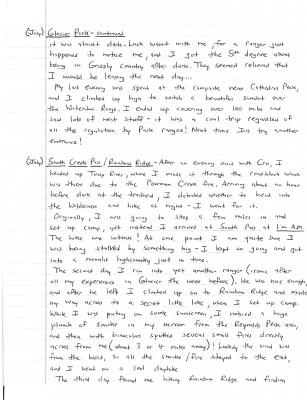 (July) Glacier Park - continued
it was almost dark. Luck wasn't with me, for a ranger just
happened to notice me, and I got the 5th degree about
being in Grizzly country after dark. They seemed relieved that
I would be leaving the next day...
My last evening was spent at the campsite near Cathedral Peak,
and I climbed up high to watch a beautiful sunset over
the Waterton Range. I ended up covering over 100 miles and
saw lots of neat stuff - it was a cool trip regardless of
all the regulation by Park rangers! Next time I'll try another
entrance!
(July) South Creek Pass / Rainbow Ridge - After an evening visit with Cro, I
headed up Twisp River, where I made it through the roadblock which
was there due to the Poorman Creek fire. Arriving about an hour
before dark at the trailhead, I debated whether to head into
the wilderness and hike at night - I went for it.
Originally, I was going to stop a few miles in and
set up camp, yet instead I arrived at South Pass at 1:00 A.M.
The hike was intense! At one point I am quite sure I
was being stalked by something big - I kept on going and got
into a moonlit high country just in time.
The second day I ran into yet another ranger (ironic after
all my experiences in Glacier the week before). He was nice enough,
and after he left I climbed up on to Rainbow Ridge and made
my way across to a secret little lake, where I set up camp.
While I was putting on some sunscreen, I noticed a huge
plume of smoke in my mirror from the Reynolds Peak area,
and then with binoculars spotted several small fires directly
across from me (about 3 or 4 miles away)! Luckily the wind was
from the west, so all the smoke/fire stayed to the east,
and I went on a cool dayhike.
The third day found me hiking Rainbow Ridge and finding